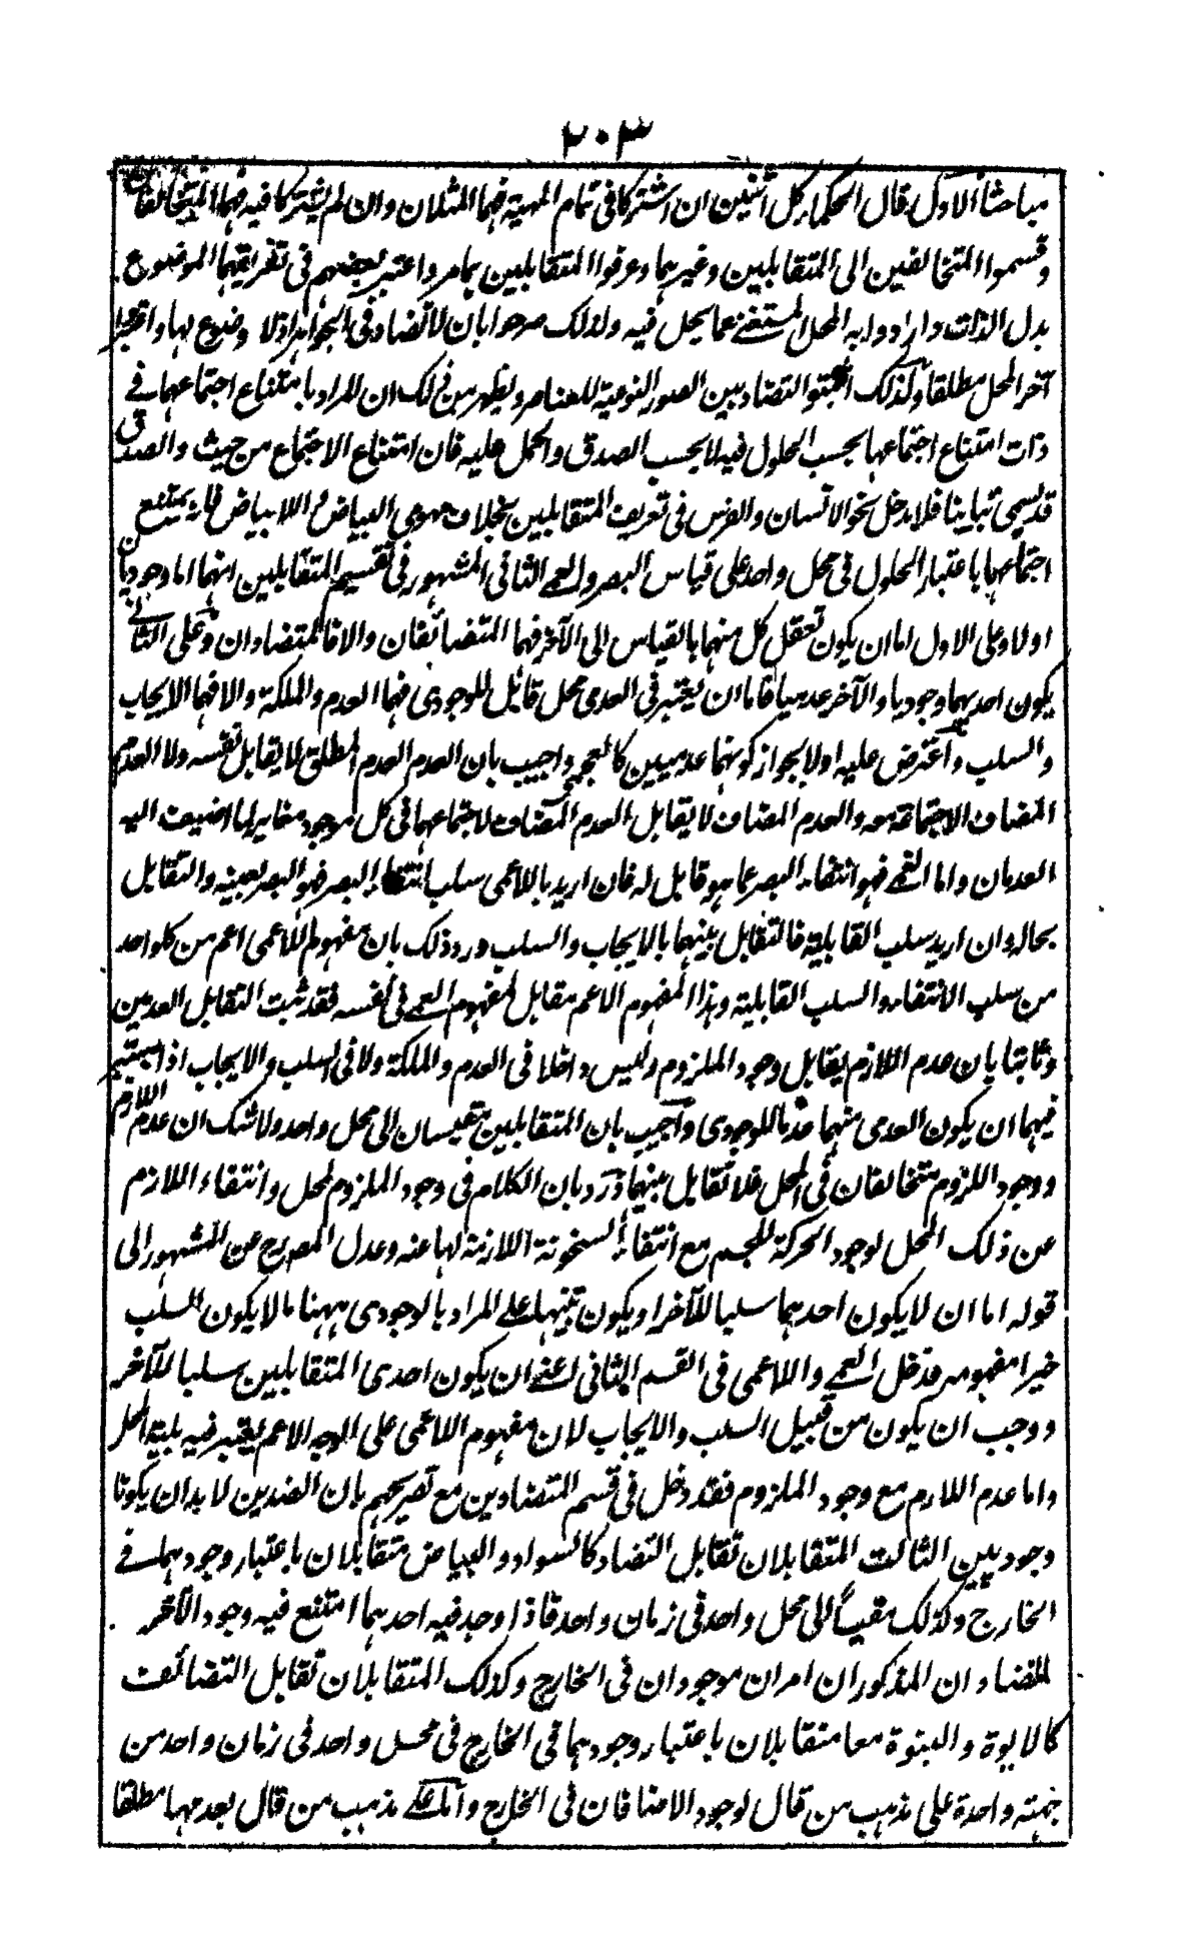 ٢٠٣
مباحث الاول قال الحكماء كل اثنين ان اشتركا فى تمام المهية فهما المثلان وان لم يشتركا فيه فهما المتخالفان
وقسموا المتخالفين الى المتقابلين وغيرهما وعرفوا المتقابلين بما مر واعتبر بعضهم فى تفريقهما الموضوع
بدل الذات وارادوا به المحل المستغنى عما يحل فيه ولذلك صرحوا بان لا تضاد فى الجواهر اذ لا وضوع لها واعتبر
آخر المحل مطلقا ولذلك اثبتوا التضاد بين الصور النوعية للعناصر ويظهر من ذلك ان المراد بامتناع اجتماعهما فى
ذات امتناع اجتماعهما بحسب الحلول فيه لا بحسب الصدق والحمل عليه فان امتناع الاجتماع من حيث والصدق
قد يسمى تباينا فلا يدخل نحو الانسان والفرس فى تعريف المتقابلين بخلاف مفهومى البياض واللابياض فانه يمتنع
اجتماعهما باعتبار الحلول فى محل واحد على قياس البصر والعمى الثانى المشهور فى تقسيم المتقابلين انهما اما وجوديان
اولا وعلى الاول اما ان يكون تعقل كل منهما بالقياس الى الآخر فهما المتضائفان والا فالمتضادان وعلى الثانى
يكون احديهما وجوديا والآخر عدميا فاما ان يعتبر فى العدمى محل قابل للوجودى فهما العدم والملكة والا فهما الايجاب
والسلب واعترض عليه اولا بجواز كونهما عدميين كالعمى واجيب بان العدم العدم المطلق لا يقابل نفسه ولا العدم
المضاف لاجتماعه معه والعدم المضاف لا يقابل العدم المضاف لاجتماعهما فى كل موجود مغاير لما اضيف اليه
العدمان واما العمى فهو انتفاء البصر عما هو قابل له فان اريد باللاعمى سلب انتفاء البصر فهو البصر بعينه والتقابل
بحاله وان اريد سلب القابلية فالتقابل بينهما بالايجاب والسلب ورد ذلك بان مفهوم اللاعمى اعم من كل واحد
من سلب الانتفاء والسلب القابلية وهذا المفهوم الاعم مقابل لمفهوم العمى فى نفسه فقد ثبت التقابل العدمين
وثانيا بان عدم اللازم يقابل وجود الملزوم وليس داخلا فى العدم والملكة ولا فى السلب والايجاب اذ اعتبر
فيهما ان يكون العدمى منهما عدما للوجودى واجيب بان المتقابلين متقيسان الى محل واحد ولا شك ان عدم اللازم
ووجود اللزوم متخالفان فى المحل فلا تقابل بينهما ورد بان الكلام فى وجود الملزوم لمحل وانتفاء اللازم
عن ذلك المحل لوجود الحركة للجسم مع انتفاء السخونة اللازمة لها عنه وعدل المصرح عن المشهور الى
قوله اما ان لا يكون احدهما سلبا للآخر او يكون تنبيها على المراد بالوجودى ههنا ما لا يكون السلب
خيرا مفهومه فدخل العمى واللاعمى فى القسم الثانى اعنى ان يكون احدى المتقابلين سلبا للآخر
ووجب ان يكون من قبيل السلب والايجاب لان مفهوم اللاعمى على الوجه الاعم يعتبر فيه المحل
واما عدم اللازم مع وجود الملزوم فقد دخل فى قسم المتضادين مع تصريحهم بان الضدين لا بد ان يكونا
وجوديين الثالث المتقابلان تقابل التضاد كالسواد والبياض متقابلان باعتبار وجودهما فى
الخارج وكذلك مقيسا الى محل واحد فى زمان واحد فاذا وجد فيه احدهما امتنع فيه وجود الآخر
المتضادان المذكوران امران موجودان فى الخارج وكذلك المتقابلان تقابل التضائف
كالابوة والبنوة معا متقابلان باعتبار وجودهما فى الخارج فى محل واحد فى زمان واحد من
جهة واحدة على مذهب من قال لوجود الاضافان فى الخارج واما على مذهب من قال بعدمها مطلقا